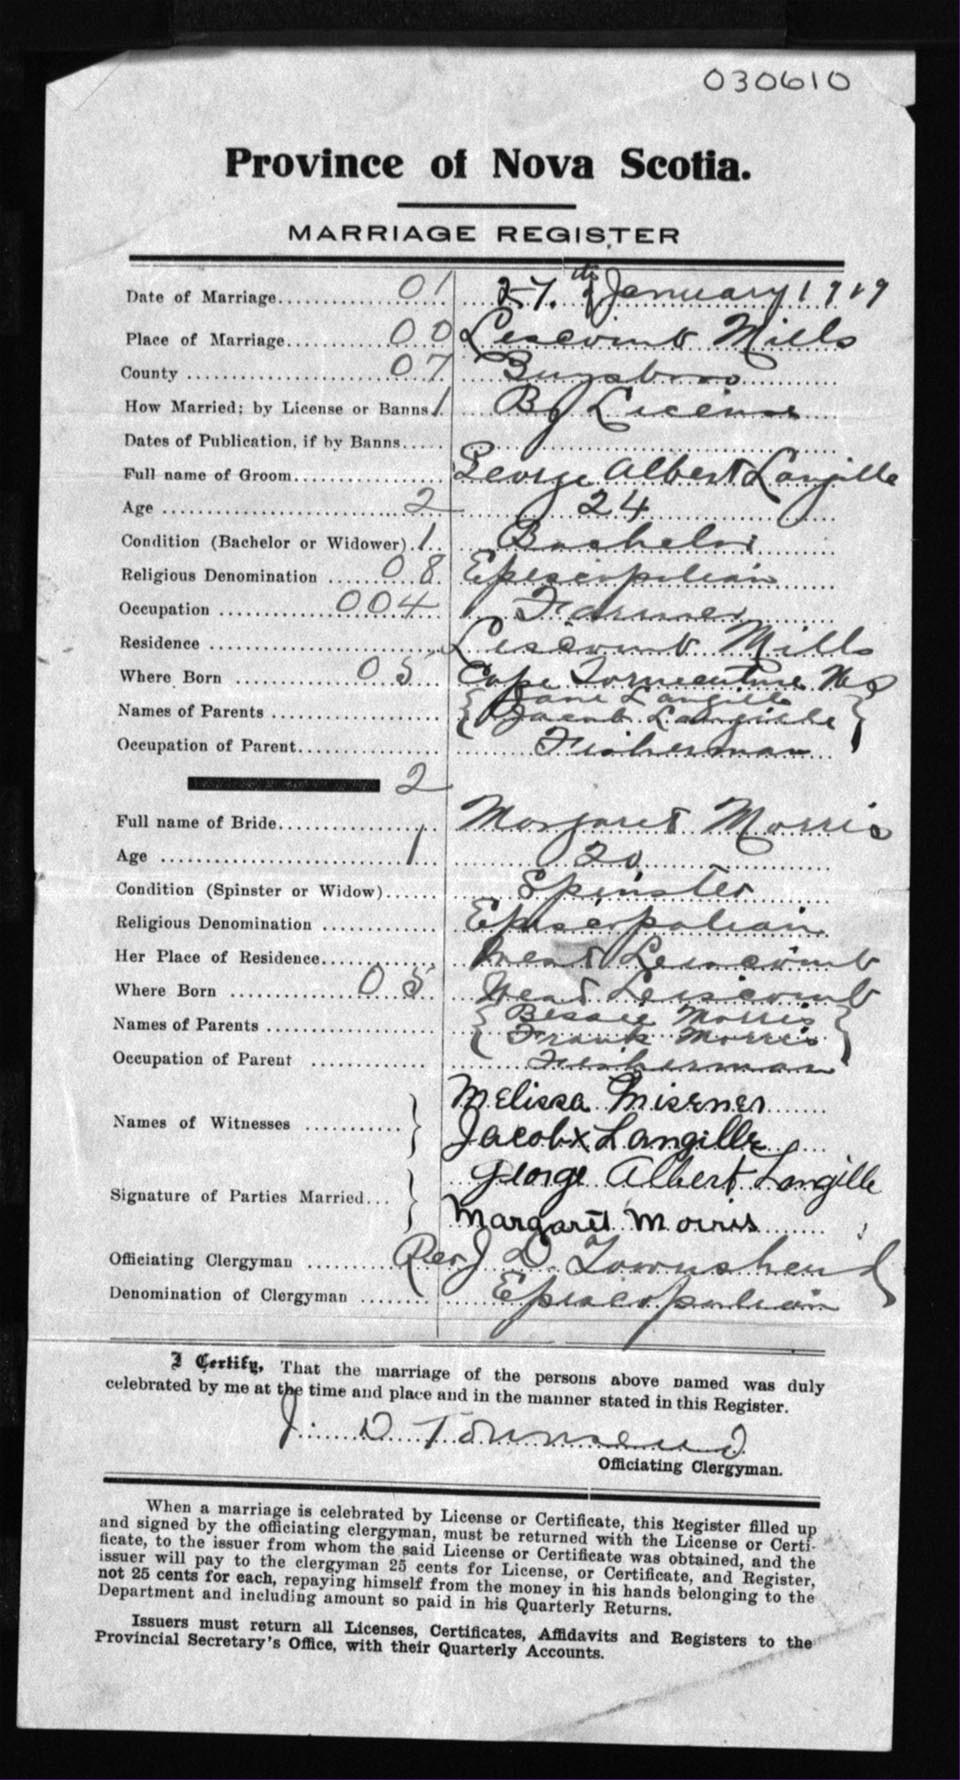 030610
Province of Nova Scotia.
MARRIAGE REGISTER
Date of Marriage 01 27th January 1919
Place of Marriage 00 Liscomb Mills
County 07 Guysboro
How Married; by License or Banns 1 By License
Dates of Publication, if by Banns
Full name of Groom George Albert Langille
Age 2 24
Condition (Bachelor or Widower) 1 Bachelor
Religious Denomination 08 Episcopalian
Occupation 004 Farmer
Residence Liscomb Mills
Where Born 05 Cape Tormentine NB
Names of Parents { Jane Langille
Jacob Langille }
Occupation of Parent Fisherman
2
Full name of Bride Margaret Morris
Age 1 20
Condition (Spinster or Widow) Spinster
Religious Denomination Episcopalian
Her Place of Residence West Liscomb
Where Born 05 West Liscomb
Names of Parents { Bessie Morris
Frank Morris }
Occupation of Parent Fisherman
Names of Witnesses } Melissa Misener
Jacob x Langille
Signature of Parties Married } George Albert Langille
Margaret Morris
Officiating Clergyman Rev J D. Townshend
Denomination of Clergyman Episcopalian
I Certify, That the marriage of the persons above named was duly
celebrated by me at the time and place and in the manner stated in this Register.
J. D Townsend
Officiating Clergyman.
When a marriage is celebrated by License or Certificate, this Register filled up
and signed by the officiating clergyman, must be returned with the License or Certi-
ficate, to the issuer from whom the said License or Certificate was obtained, and the
issuer will pay to the clergyman 25 cents for License, or Certificate, and Register,
not 25 cents for each, repaying himself from the money in his hands belonging to the
Department and including amount so paid in his Quarterly Returns.
Issuers must return all Licenses, Certificates, Affidavits and Registers to the
Provincial Secretary's Office, with their Quarterly Accounts.